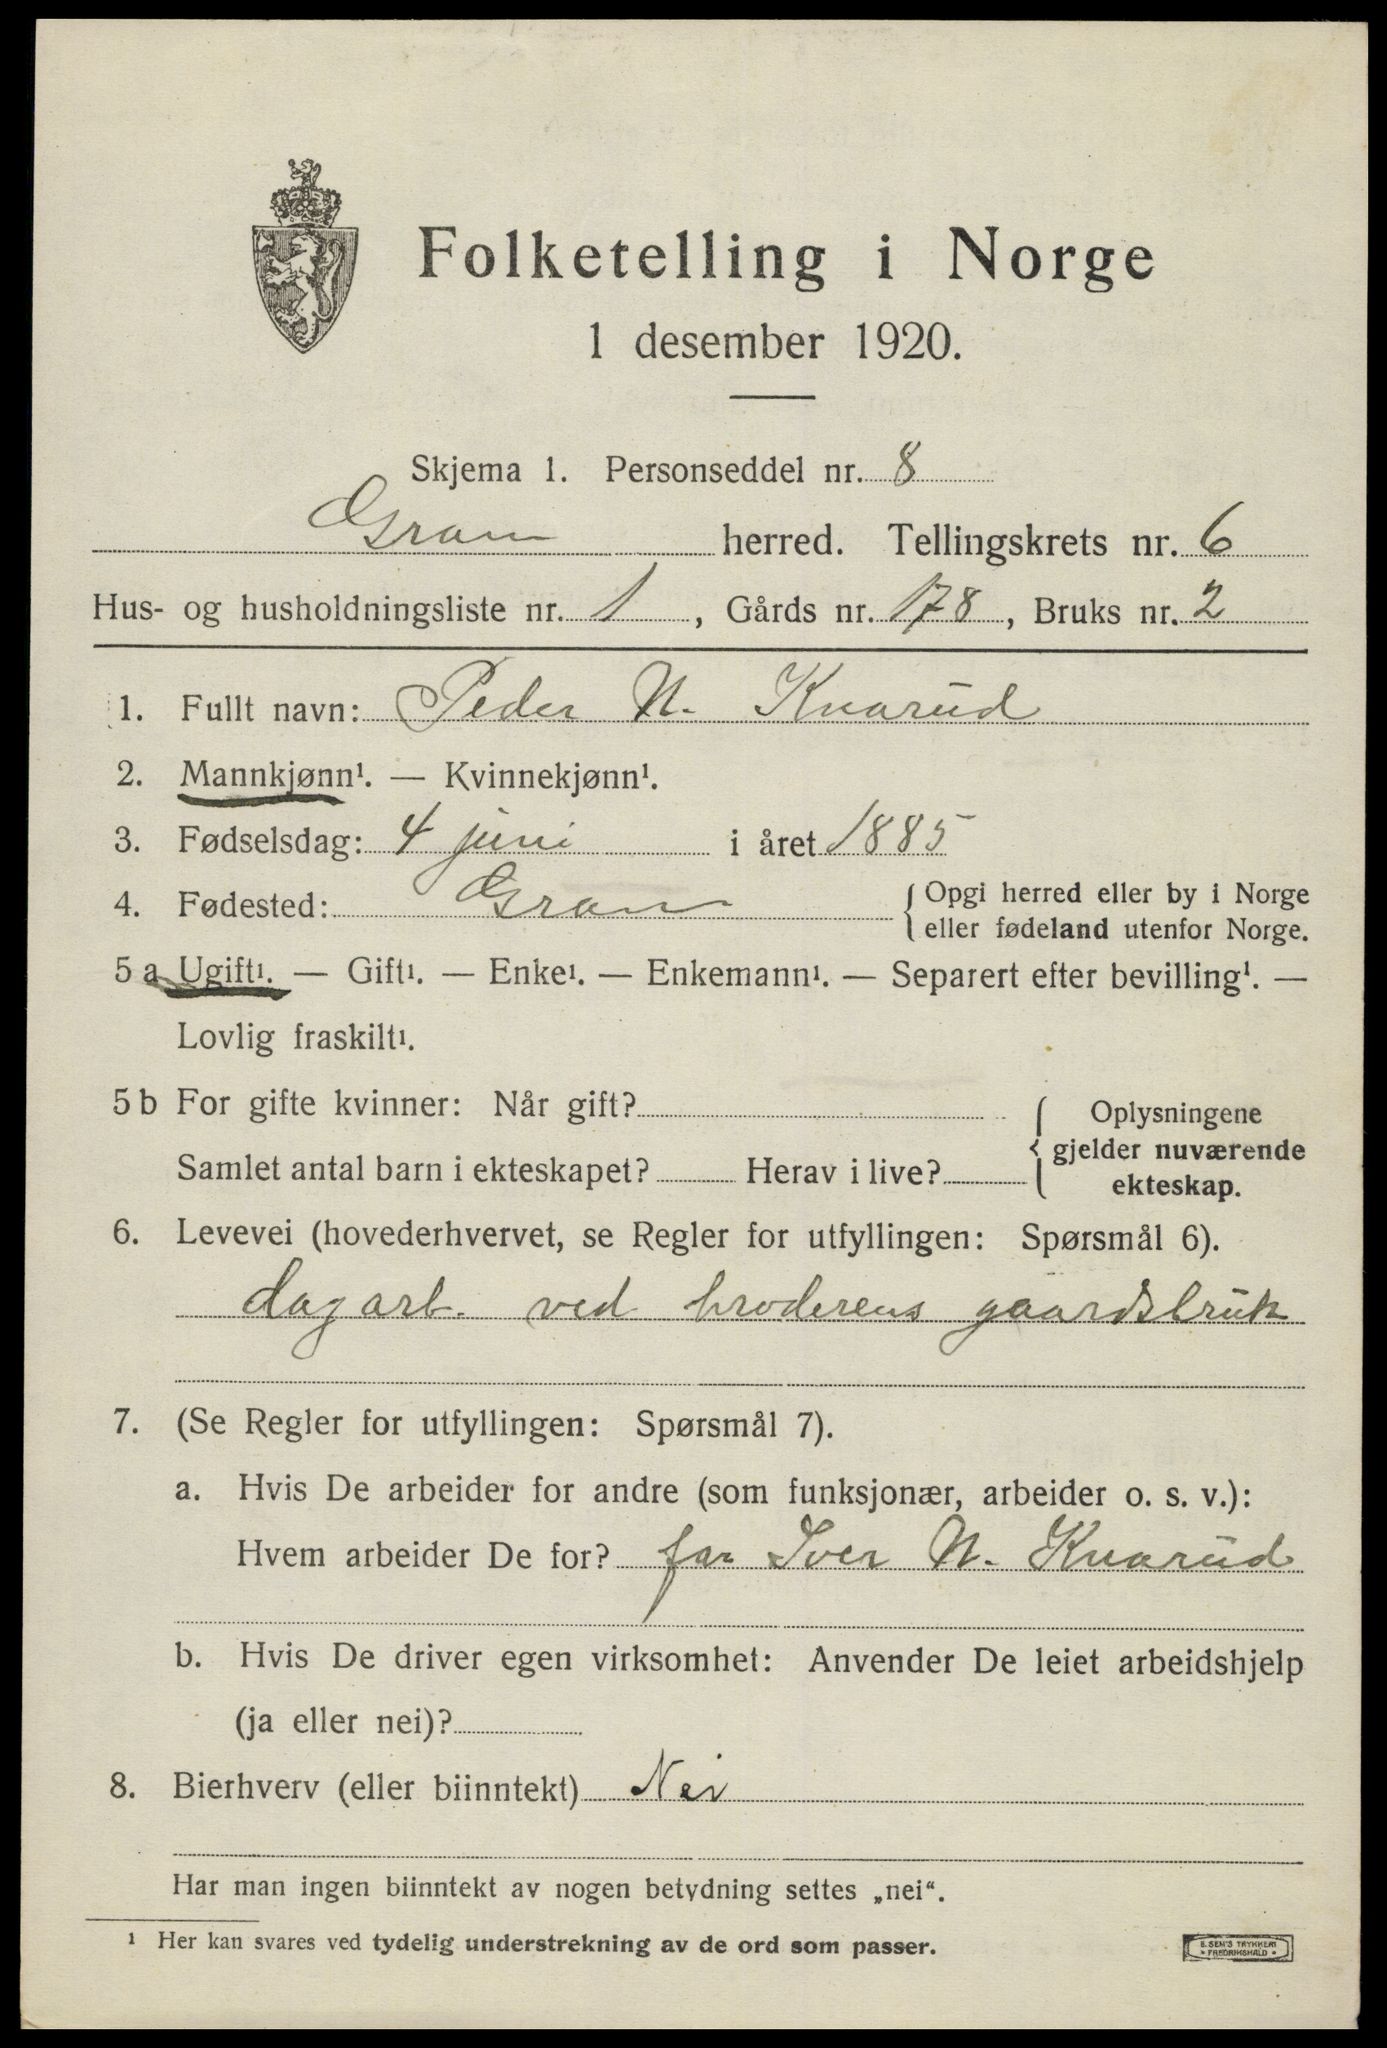 Folketelling i Norge
1 desember 1920.
Skjema 1. Personseddel nr. 8
Gran herred. Tellingskrets nr. 6
Hus- og husholdningsliste nr. 1, Gårds nr. 178, Bruks nr. 2
1. Fullt navn: Peder N. Knarud
2. Mannkjønn¹. — Kvinnekjønn¹.
3. Fødselsdag: 4 juni i året 1885
4. Fødested: Gran { Opgi herred eller by i Norge
eller fødeland utenfor Norge.
5 a Ugift¹. — Gift¹. — Enke¹. — Enkemann¹. — Separert efter bevilling¹. —
Lovlig fraskilt¹.
5 b For gifte kvinner: Når gift? { Oplysningene
gjelder nuværende
Samlet antal barn i ekteskapet? Herav i live? ekteskap.
6. Levevei (hovederhvervet, se Regler for utfyllingen: Spørsmål 6).
dagarb. ved broderens gaardsbruk
7. (Se Regler for utfyllingen: Spørsmål 7).
a. Hvis De arbeider for andre (som funksjonær, arbeider o. s. v.):
Hvem arbeider De for? for Iver N. Knarud
b. Hvis De driver egen virksomhet: Anvender De leiet arbeidshjelp
(ja eller nei)?
8. Bierhverv (eller biinntekt) Nei
Har man ingen biinntekt av nogen betydning settes „nei“.
¹ Her kan svares ved tydelig understrekning av de ord som passer.
E. SEM'S TRYKKERI
• FREDRIKSHALD •